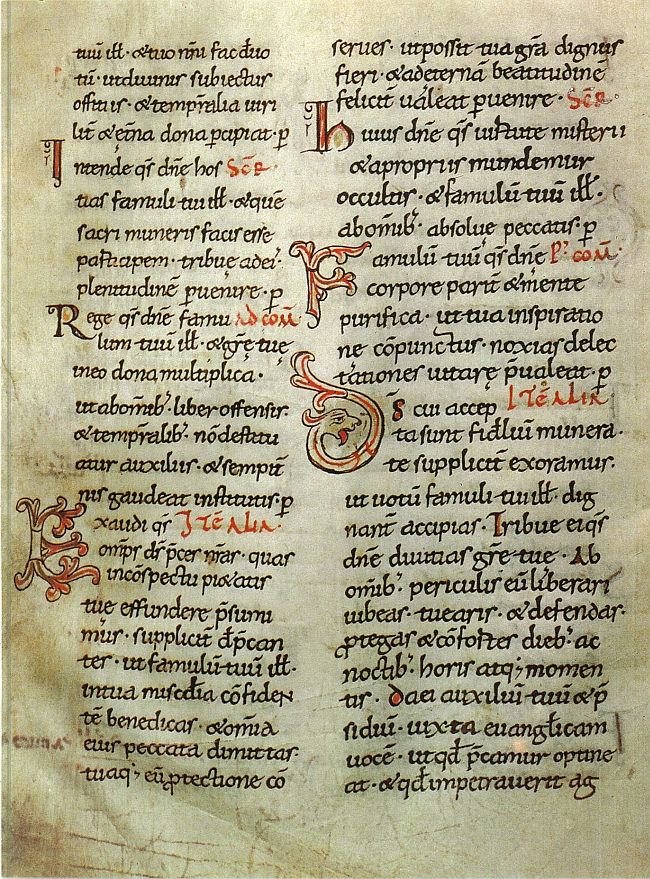 tuū ill̄. & tuo nr̄ni fac deuo
tū. ut diuinis subiectus
offitiis. & temp̄ralia uiri
lit̄ & et̄na dona p̄cipiat. p̄
Intende qs̄ dn̄e hos Sēc̄R
tias famuli tui ill̄. & quē
sacri muneris facis esse
participem. tribue adei.
plenitudinē p̄uenire. p̄
Rege qs̄ dn̄e famu AD cōm̄
lum tuū ill̄. & grē tuę
in eo dona multiplica.
ut ab om̄ib; liber offensis.
& temp̄ralib; nō destitu
atur auxiliis. & sempit̄
nis gaudeat institutis. p̄
Exaudi qs̄ ITē ALIA.
om̄ps ds̄ p̄cer nr̄as. quas
in cōspectu pi&atis
tue effundere p̄sumi
mus. supplicit̄ dep̄can
tes. ut famulū tuū ill̄.
in tua mis̄c̄dia cōfiden
tē benedicas. & om̄ia
eius peccata dimittas.
tuaq; eū p̄tectione cō
serues. ut possit tua gr̄a dignus
fieri. & ad eternā beatitudinē
felicit̄ ualeat p̄uenire. Sēc̄R
huius dn̄e qs̄ uirtute misterii
& a propriis mundemur
occultis. & famulū tuū ill̄.
ab om̄ib; absolue peccatis. p̄
Famulū tuū qs̄ dn̄e P; cōm̄
corpore parit̄ & mente
purifica. ut tua inspiratio
ne cōpunctus. noxias delec
tationes uitare p̄ualeat. p̄
Ds̄ cui accep ITē ALIA
ta sunt fidelium munera.
te supplicit̄ exoramus.
ut uotū famuli tui ill̄. dig
nant̄ accipias. Tribue ei qs̄
dn̄e diuitias grē tue. Ab
om̄ib; periculis eū liberari
iubeas. tuearis. & defendas.
p̄tegas & cōfortes dieb; ac
noctib; horis atq; momen
tis. Da ei auxiliū tuū & p̄
sidiū. iuxta euanglicam
uocē. ut qd̄ p̄camur optine
at. & qd̄ impetrauerit ag